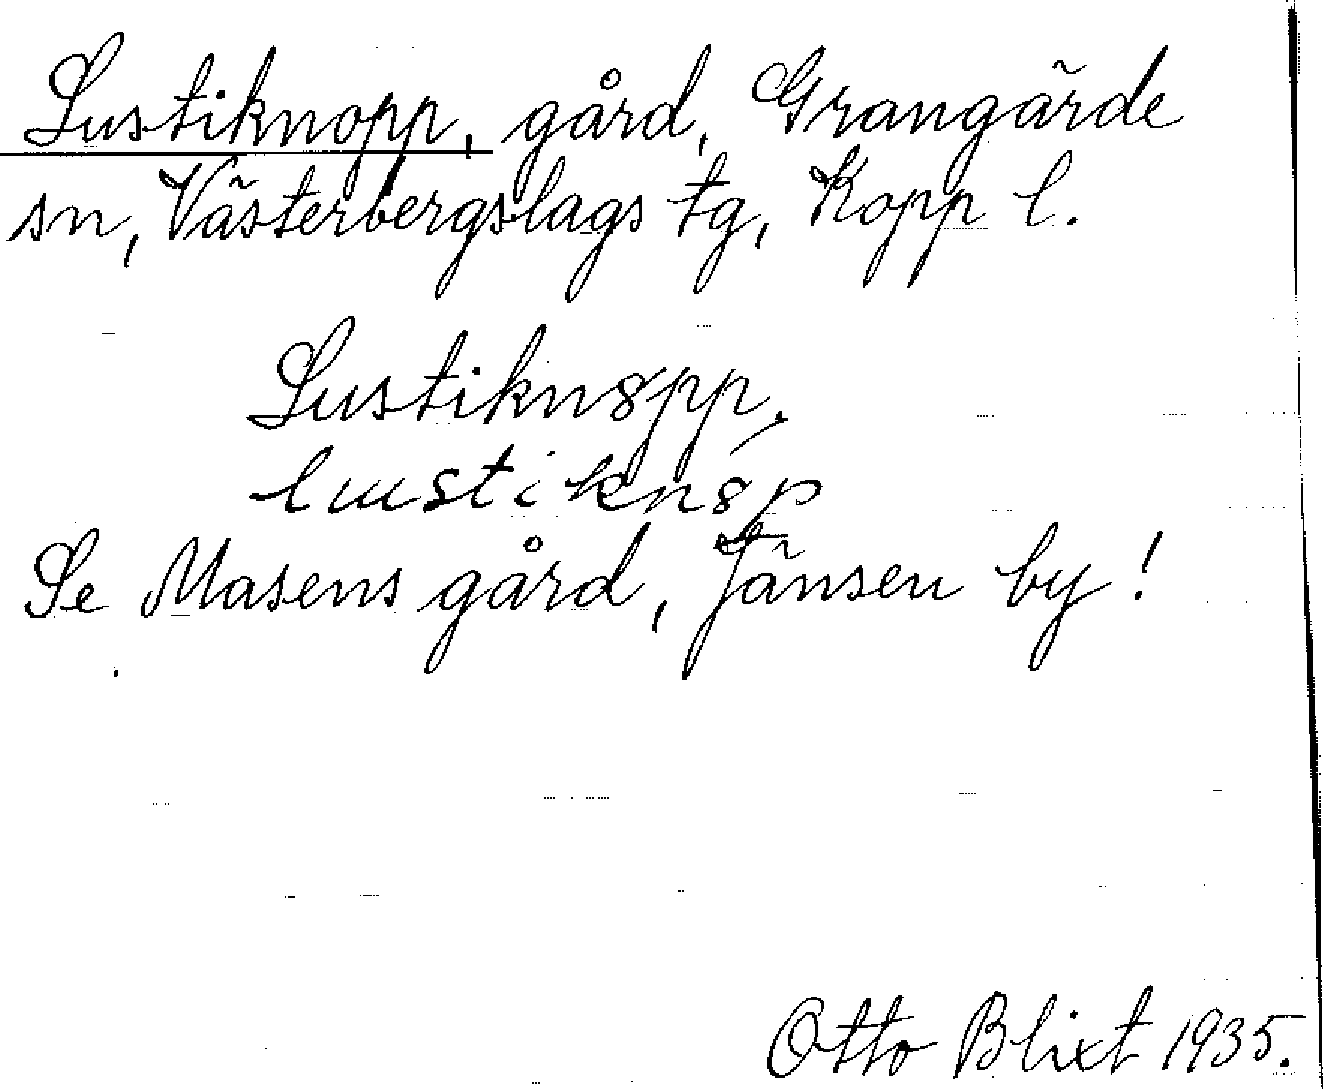 Lustiknopp, gård, Grangärde
sn, Västerbergslags tg, Kopp l.
Lustikn8pp,
lɯstikn8p
Se Masens gård, Jänsen by!
Otto Blixt 1935.